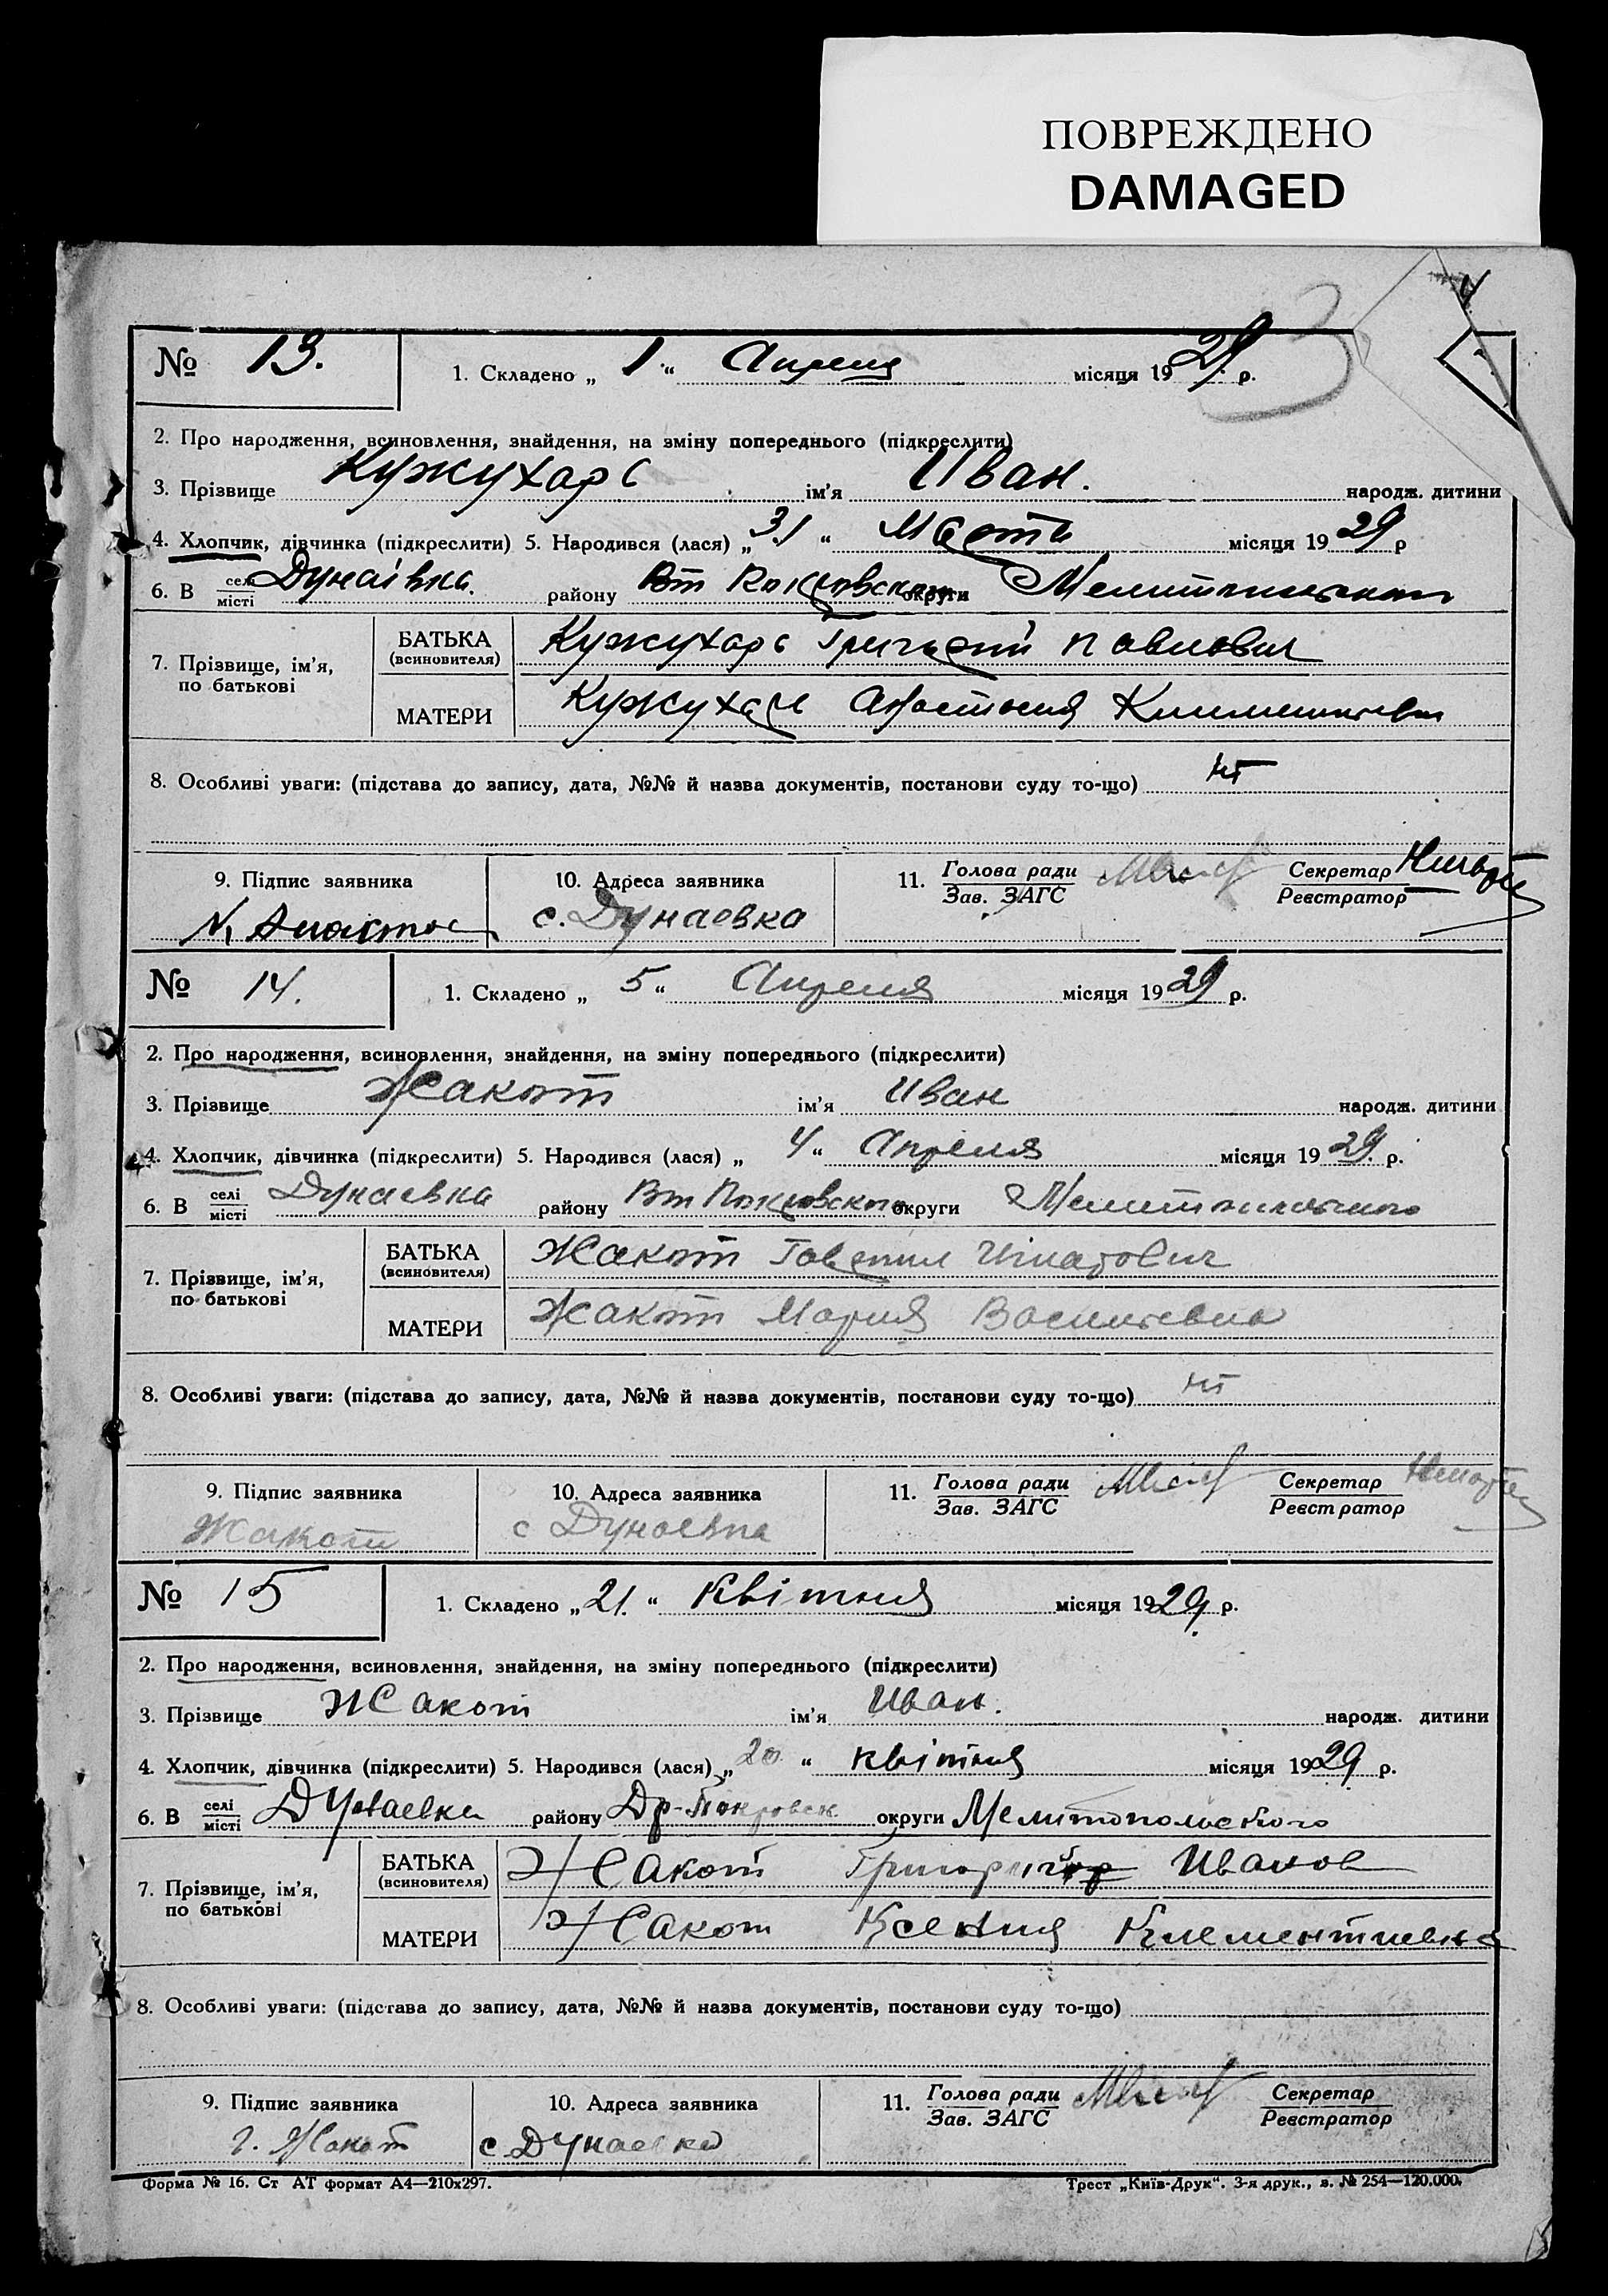 ПОВРЕЖДЕНО
DAMAGED
4
3
№ 13. 1. Складено „ 1 “ Апреля місяця 1929 р.
2. Про народження, всиновлення, знайдення, на зміну попереднього (підкреслити)
3. Прізвище Кужухарь ім'я Иван. народж. дитини
4. Хлопчик, дівчинка (підкреслити) 5. Народився (лася) „ 31 “ Марта місяця 1929 р
6. В селі/місті Дунаівка. району Вт Покровского округи Мелитопольского
7. Прізвище, ім'я, по батькові
БАТЬКА (всиновителя) Кужухарь Григорий Павлович
МАТЕРИ Кужухарь Анастасия Климентьевна
8. Особливі уваги: (підстава до запису, дата, №№ й назва документів, постанови суду то-що) нт
9. Підпис заявника 10. Адреса заявника 11. Голова ради/Зав. ЗАГС Секретар/Реєстратор
с. Дунаевка
№ 14. 1. Складено „ 5 “ Апреля місяця 1929 р.
2. Про народження, всиновлення, знайдення, на зміну попереднього (підкреслити)
3. Прізвище Жакот ім'я Иван народж. дитини
4. Хлопчик, дівчинка (підкреслити) 5. Народився (лася) „ 4 “ Апреля місяця 1929. р.
6. В селі/місті Дунаевка району Вт Покровского округи Мелитопольского
7. Прізвище, ім'я, по батькові
БАТЬКА (всиновителя) Жакот Гавриил Игнатович
МАТЕРИ Жакот Мария Васильевна
8. Особливі уваги: (підстава до запису, дата, №№ й назва документів, постанови суду то-що) нт
9. Підпис заявника 10. Адреса заявника 11. Голова ради/Зав. ЗАГС Секретар/Реєстратор
Жакот с Дунаевка
№ 15 1. Складено „ 21. “ Квітня місяця 1929 р.
2. Про народження, всиновлення, знайдення, на зміну попереднього (підкреслити)
3. Прізвище Жакот ім'я Иван. народж. дитини
4. Хлопчик, дівчинка (підкреслити) 5. Народився (лася) „ 20. “ квітня місяця 1929 р.
6. В селі/місті Дунаевка району Др-Покровск округи Мелитопольского
7. Прізвище, ім'я, по батькові
БАТЬКА (всиновителя) Жакот Григорий Иванов
МАТЕРИ Жакот Ксения Клементиевна
8. Особливі уваги: (підстава до запису, дата, №№ й назва документів, постанови суду то-що)
9. Підпис заявника 10. Адреса заявника 11. Голова ради/Зав. ЗАГС Секретар/Реєстратор
Г. Жакот с Дунаевка
Форма № 16. Ст АТ формат А4—210х297. Трест „Київ-Друк“. 3-я друк., з. № 254—120.000.